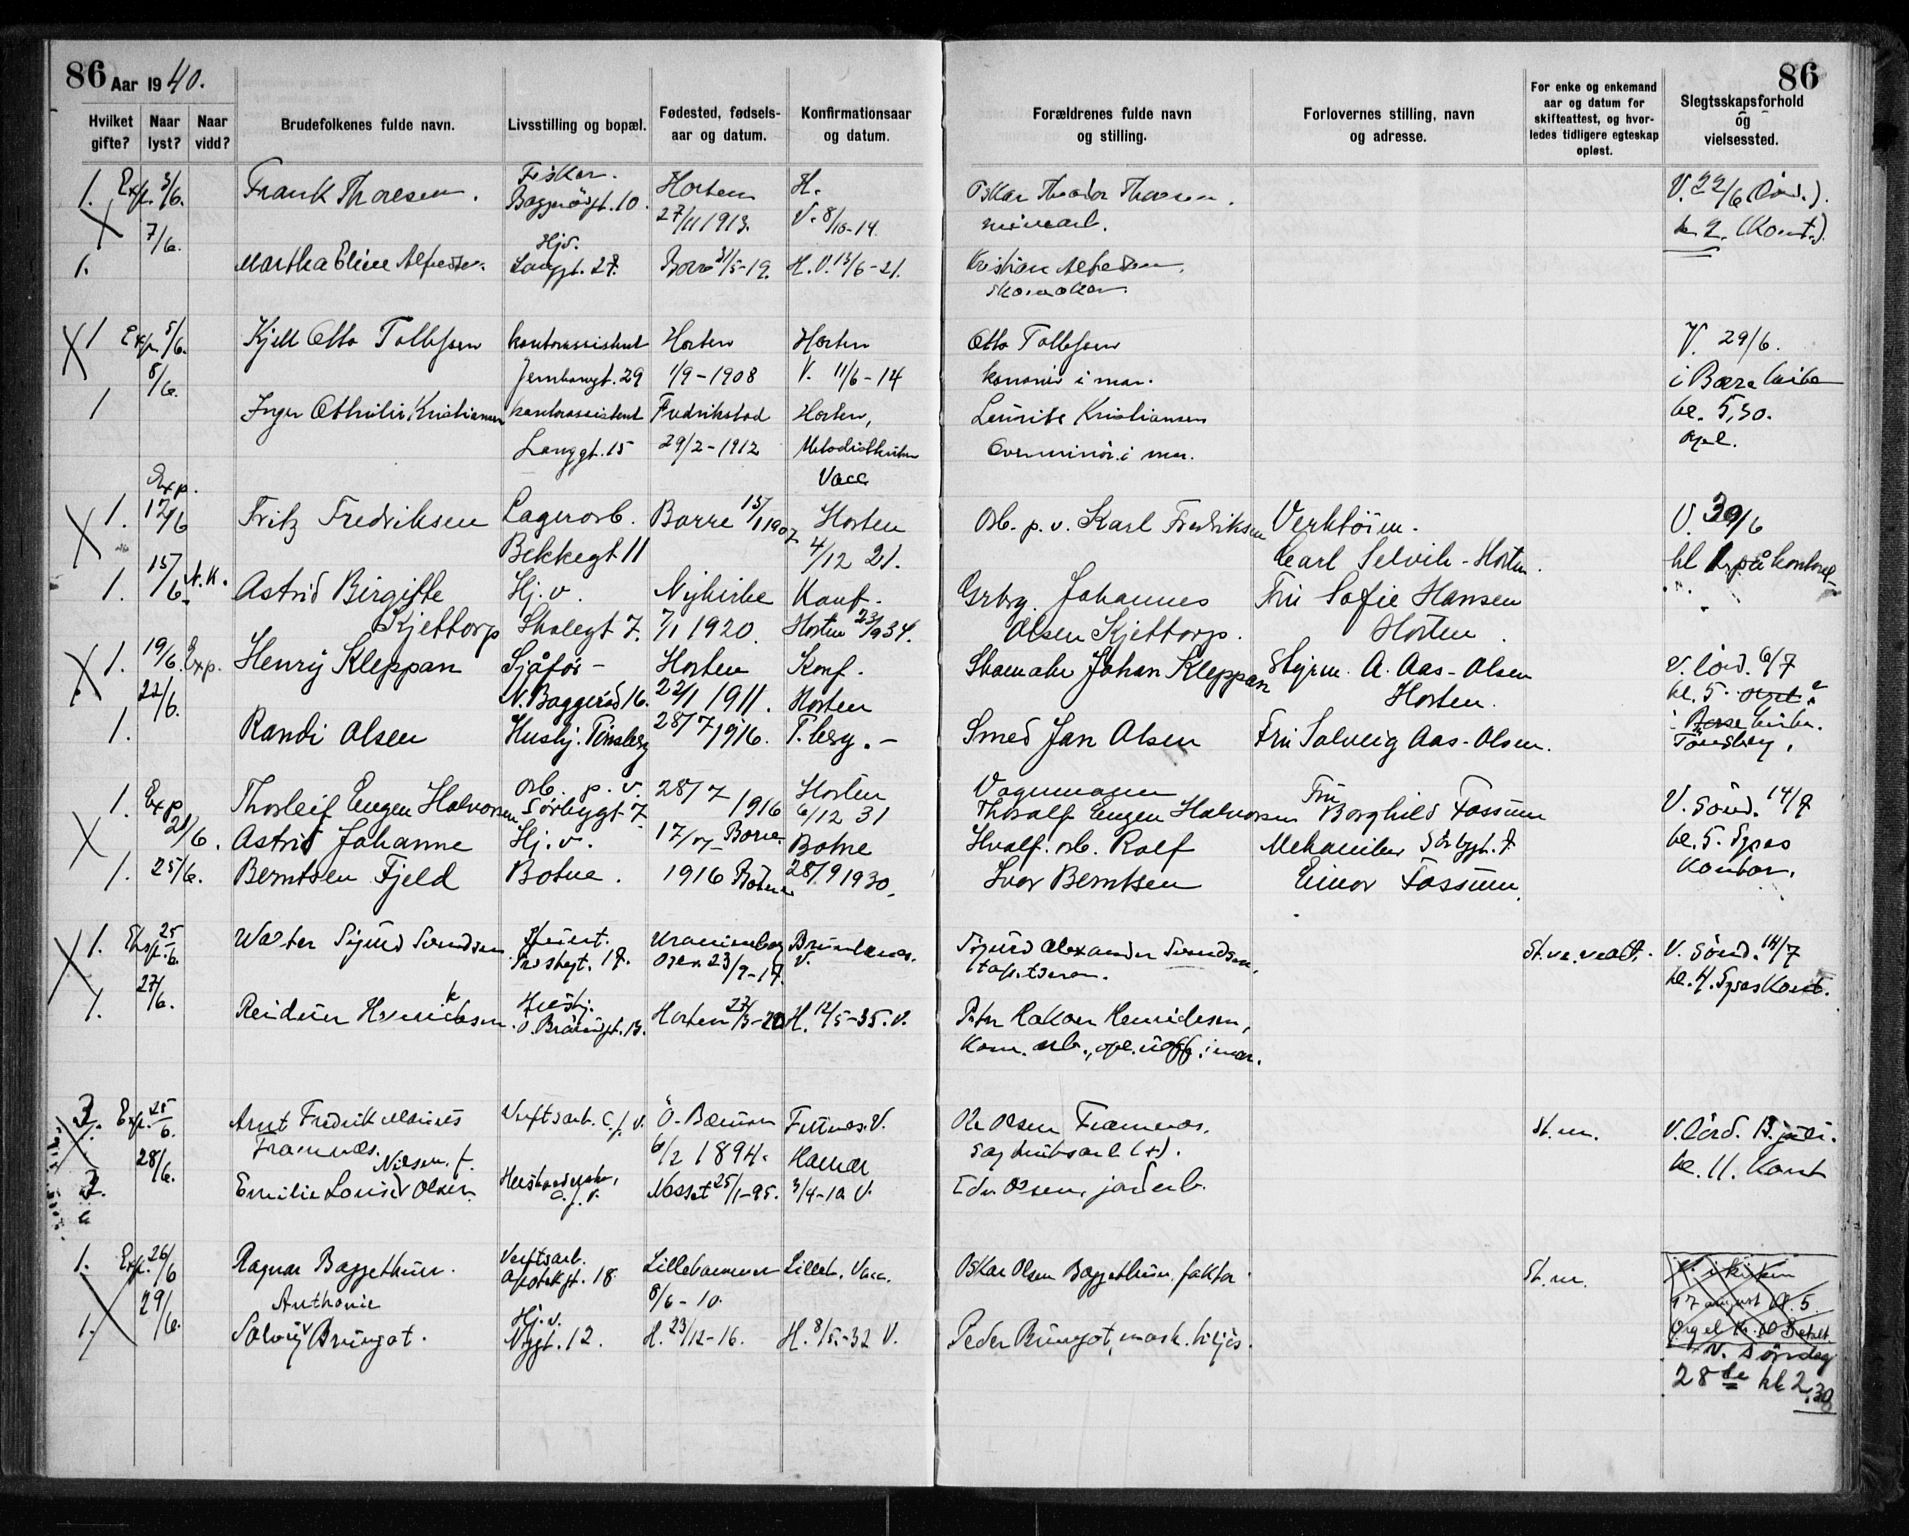 86 Aar 1940.
86
Hvilket gifte?
Naar lyst?
Naar vidd?
Brudefolkenes fulde navn.
Livsstilling og bopæl.
Fødested, fødsels-
aar og datum.
Konfirmationsaar
og datum.
Forældrenes fulde navn
og stilling.
Forlovernes stilling, navn
og adresse.
For enke og enkemand
aar og datum for
skifteattest, og hvor-
ledes tidligere egteskap
opløst.
Slegtsskapsforhold
og
vielsessted.
1. Exp. 3/6. Frank Thoresen. Fisker. Horten H. Oskar Theodor Thoresen, V. 22/6 (Lörd.).
7/6. 27/11 1913. V. 8/10-14. minearb. kl 2. (Kont.).
1. Martha Eline Alfredsen. Hjv. Langgt. 27. Borre 31/5-19. H. V. 13/6-21. Kristian Alfredsen,
skomaker.
1 Exp. 5/6. Kjell Otto Tollefsen kontorassistent Horten Horten Otto Tollefsen V. 29/6.
8/6. Jernbanegt. 29 1/9-1908 V. 11/6-14 kanonér i mar. i Borre kirke
1 Inger Othilie Kristiansen kontorassistent Fredrikstad Horten, Laurits Kristiansen kl. 5,30.
Langgt. 15 29/2-1912 Metodistkirken overminör. i mar. Orgel.
Vacc
Exp.
1. 12/6 Fritz Fredriksen Lagerarb. Borre 15/1 1907 Horten Arb. p. v. Karl Fredriksen Verktöim. V. 30/6
Bekkegt 11 4/12 21. Carl Selvik-Horten kl 1 på kontoret
1. 15/6 N.K. Astrid Birgitte Hj.v. Nykirke Konf. Grbrg. Johannes Fru Sofie Hansen
Kjettorp Skolegt 7. 7/1 1920. Horten 23/9 34. Olsen Kjettorp. Horten.
1. 19/6. Exp. Henry Kleppan Sjåför - Horten Konf. Skomaker Johan Kleppan Styrm. A. Aas-Olsen V. lörd. 6/7
22/6. N. Baggeröd 16. 22/1 1911. Horten Horten. kl. 5.
1. Randi Olsen Hushj. Tönsberg 28/7 1916. T.berg. - Smed Jan Olsen Fru Solveig Aas-Olsen. i Borre kirke.
Tönsberg.
1. Exp Thorleif Eugen Halvorsen Arb. p. v. 28/7 1916 Horten Vognmann Fru V. Sönd. 14/7
21/6. Sörbygt. 7. 6/12 31 Thoralf Eugen Halvorsen Borghild Fossum
Astrid Johanne Hj.v. 17/7- Borre Botne Hvalf. arb. Rolf Mekaniker Sörbygt. 7 kl. 5. Spes
1. 25/6. Berntsen Fjeld Botne. 1916 Botne 28/9 1930. Ivar Berntsen Einar Fossum. Kontor.
1. Eksp. 25/6. Walter Sigurd Svendsen. Brunlanes. Sigurd Alexander Svendsen, V. Sönd. 14/7
27/6. 23/9-17. V. kl. 4. Spes Kont.
1. Reidun Henriksen Hushj. Horten 27/3-20 H. 12/5-35. V. Peter Hakon Henriksen,
Kom. arb.
3. Exp. 25/6. Arnt Fredrik Marius Verftsarb. C.J.V. Ö. Furnes. V. Ole Olsen Framnæs. V. lörd. 13. juli.
28/6. Framnæs. 6/2 1894. Hamar (+). kl. 11. Kont
Nielsen f.
Emilie Louise Olsen. C.J.V. 25/1-95. 3/4-10 V. Olsen, jordarb.
1. Exp. 26/6 Ragnar Baggethun. Verftsarb. Lillehammer Lilleh. Vacc. Oskar Olsen Baggethun. faktor
Apotekgt. 18. 8/6-10.
29/6. Anthonie
1. Solveig Brungot. Hj.v. Nygt. 12. H. 23/12-16. H. 8/5-32 V. Peder Brungot, mask.
17 august kl. 5.
Orgel Kr. 10 Betalt.
V. Söndag
28de kl 2,30